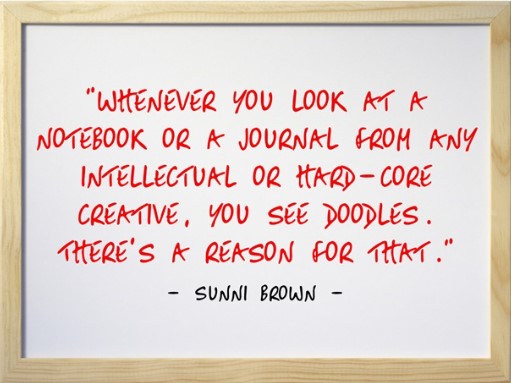 "WHENEVER YOU LOOK AT A
NOTEBOOK OR A JOURNAL FROM ANY
INTELLECTUAL OR HARD-CORE
CREATIVE, YOU SEE DOODLES.
THERE'S A REASON FOR THAT."
- SUNNI BROWN -